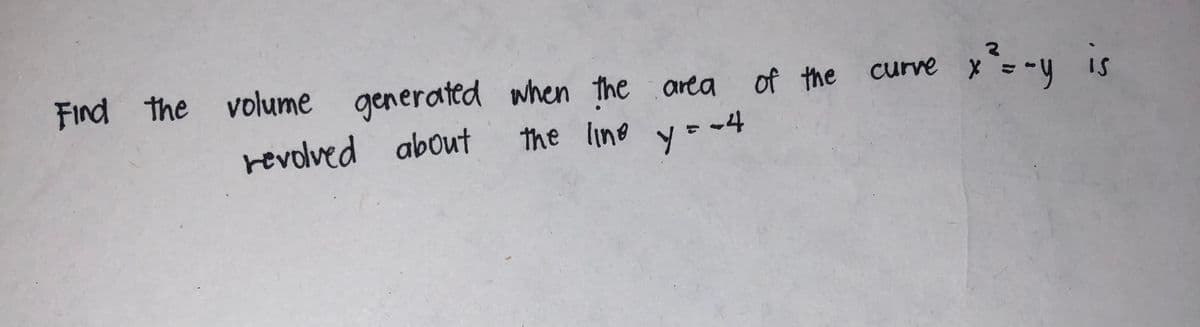 Find the volume generated when the area of the curve x² = -y is
revolved about the line y = -4